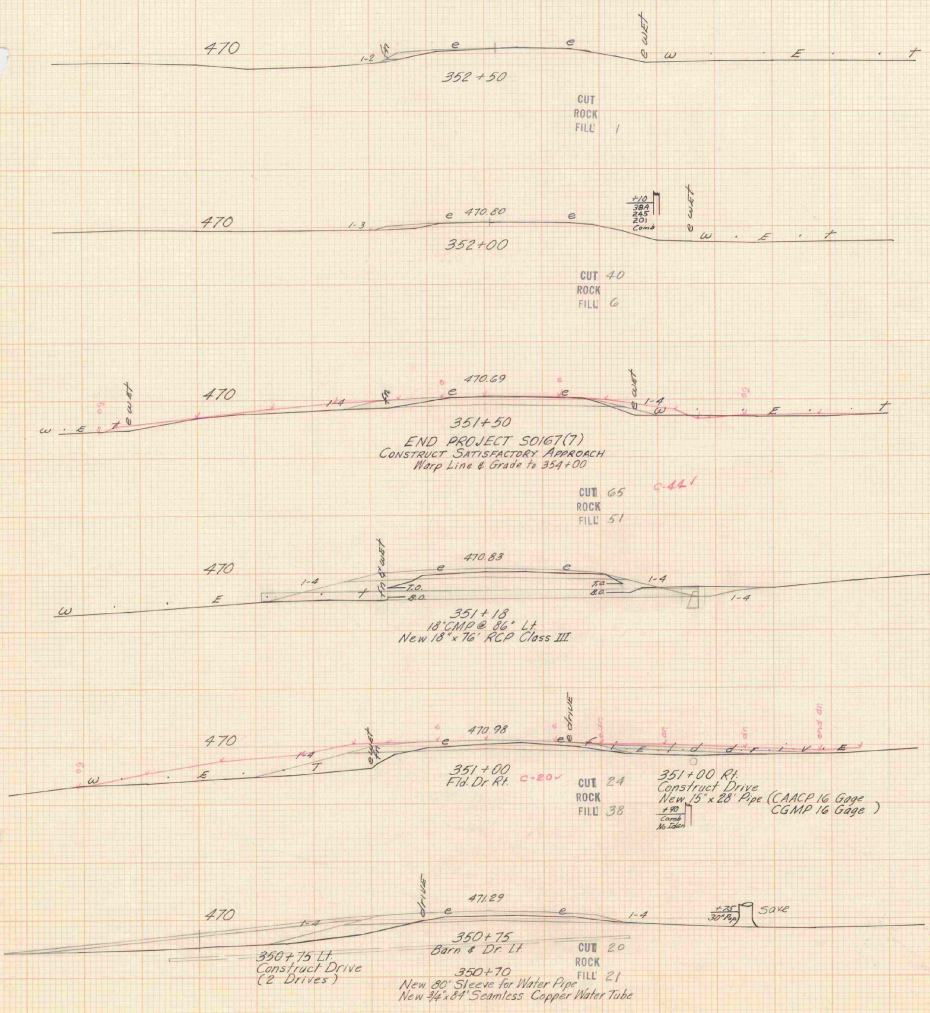 470
1-2
fn
e
e
e WET
W . E . t
352+50
CUT
ROCK
FILL 1
470
1-3
e 470.80 e
+10
38A
245
201
Comb
e WET
W . E . t
352+00
CUT 40
ROCK
FILL 6
470
og
e WET
W . E . t
1-4
fn
e
e
470.69
e
e
e WET
1-4
og
W . E . t
351+50
END PROJECT S0167(7)
CONSTRUCT SATISFACTORY APPROACH
Warp Line & Grade to 354+00
CUT 65
C-44
ROCK
FILL 51
470
1-4
fn & WET
e
470.83
e
T.O.
B.O.
T.O.
B.O.
1-4
1-4
W . . E . t
351+18
18" CMP @ 86° Lt.
New 18" x 76' RCP Class III
470
og
1-4
e WET
e
e
470.98
e
e
e DRIVE
dr.
dr.
dr.
end dr.
W . E . T
f i e l d d r i v e
351+00
Fld. Dr Rt.
C-20✓
CUT 24
ROCK
FILL 38
351+00 Rt.
Construct Drive
New 15" x 28' Pipe (CAACP 16 Gage
CGMP 16 Gage )
+90
Comb
No Iden
470
1-4
DRIVE
e
471.29
e
1-4
+25
30" Pop
Save
350+75 Lt
Construct Drive
(2 Drives)
350+75
Barn & Dr Lt
CUT 20
ROCK
FILL 21
350+70
New 80' Sleeve for Water Pipe
New 3/4" x 84' Seamless Copper Water Tube